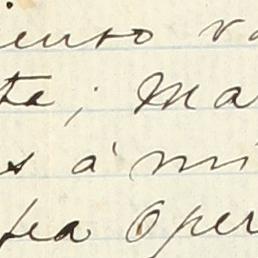 ienso va
ta; Ma
s á mi
fea Oper